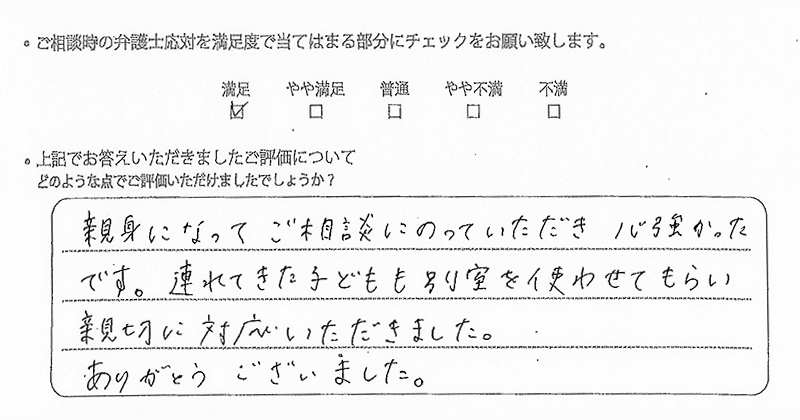 。ご相談時の弁護士応対を満足度で当てはまる部分にチェックをお願い致します。
満足 やや満足 普通 やや不満 不満
☑ □ □ □ □
。上記でお答えいただきましたご評価について
どのような点でご評価いただけましたでしょうか？
親身になって ご相談にのっていただき 心強かった
です。連れてきた子どもも別室を使わせてもらい
親切に対応いただきました。
ありがとう ございました。